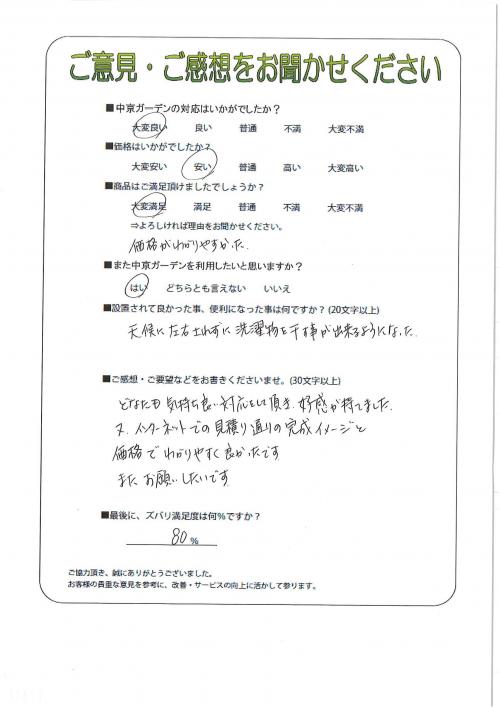 ご意見・ご感想をお聞かせください
■中京ガーデンの対応はいかがでしたか？
大変良い 良い 普通 不満 大変不満
■価格はいかがでしたか？
大変安い 安い 普通 高い 大変高い
■商品はご満足頂けましたでしょうか？
大変満足 満足 普通 不満 大変不満
⇒よろしければ理由をお聞かせください。
価格がわかりやすかった。
■また中京ガーデンを利用したいと思いますか？
はい どちらとも言えない いいえ
■設置されて良かった事、便利になった事は何ですか？(20文字以上)
天候に左右されずに洗濯物を干す事が出来るようになった。
■ご感想・ご要望などをお書きくださいませ。(30文字以上)
どなたも気持ち良い対応をして頂き、好感が持てました。
又、インターネットでの見積り通りの完成イメージと
価格でわかりやすく良かったです
また お願いしたいです
■最後に、ズバリ満足度は何％ですか？
80 ％
ご協力頂き、誠にありがとうございました。
お客様の貴重な意見を参考に、改善・サービスの向上に活かして参ります。